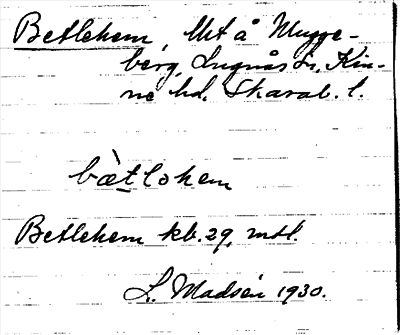 Betlehem, lht å Mugge-
berg, Lugnås sn, Kin-
ne hd, Skarab. l.
bæ̀tlohem
Betlehem kb. 29, mtl.
L. Madsén 1930.